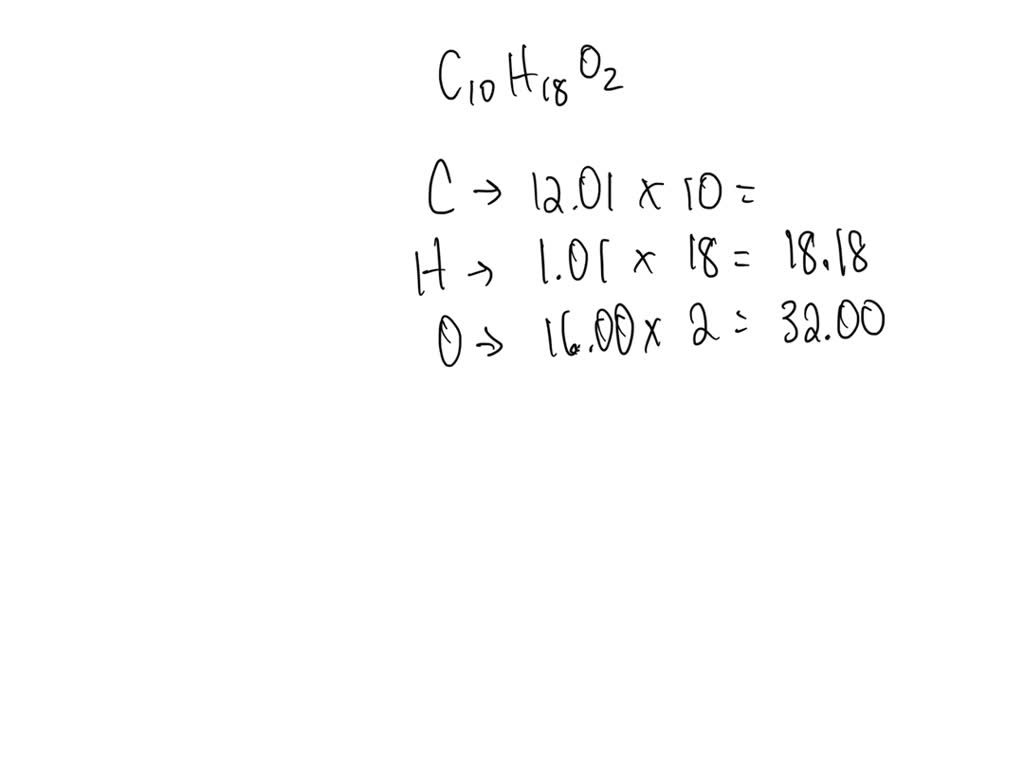 C₁₀H₁₈O₂
C → 12.01 x 10 =
H → 1.01 x 18 = 18.18
O → 16.00 x 2 = 32.00